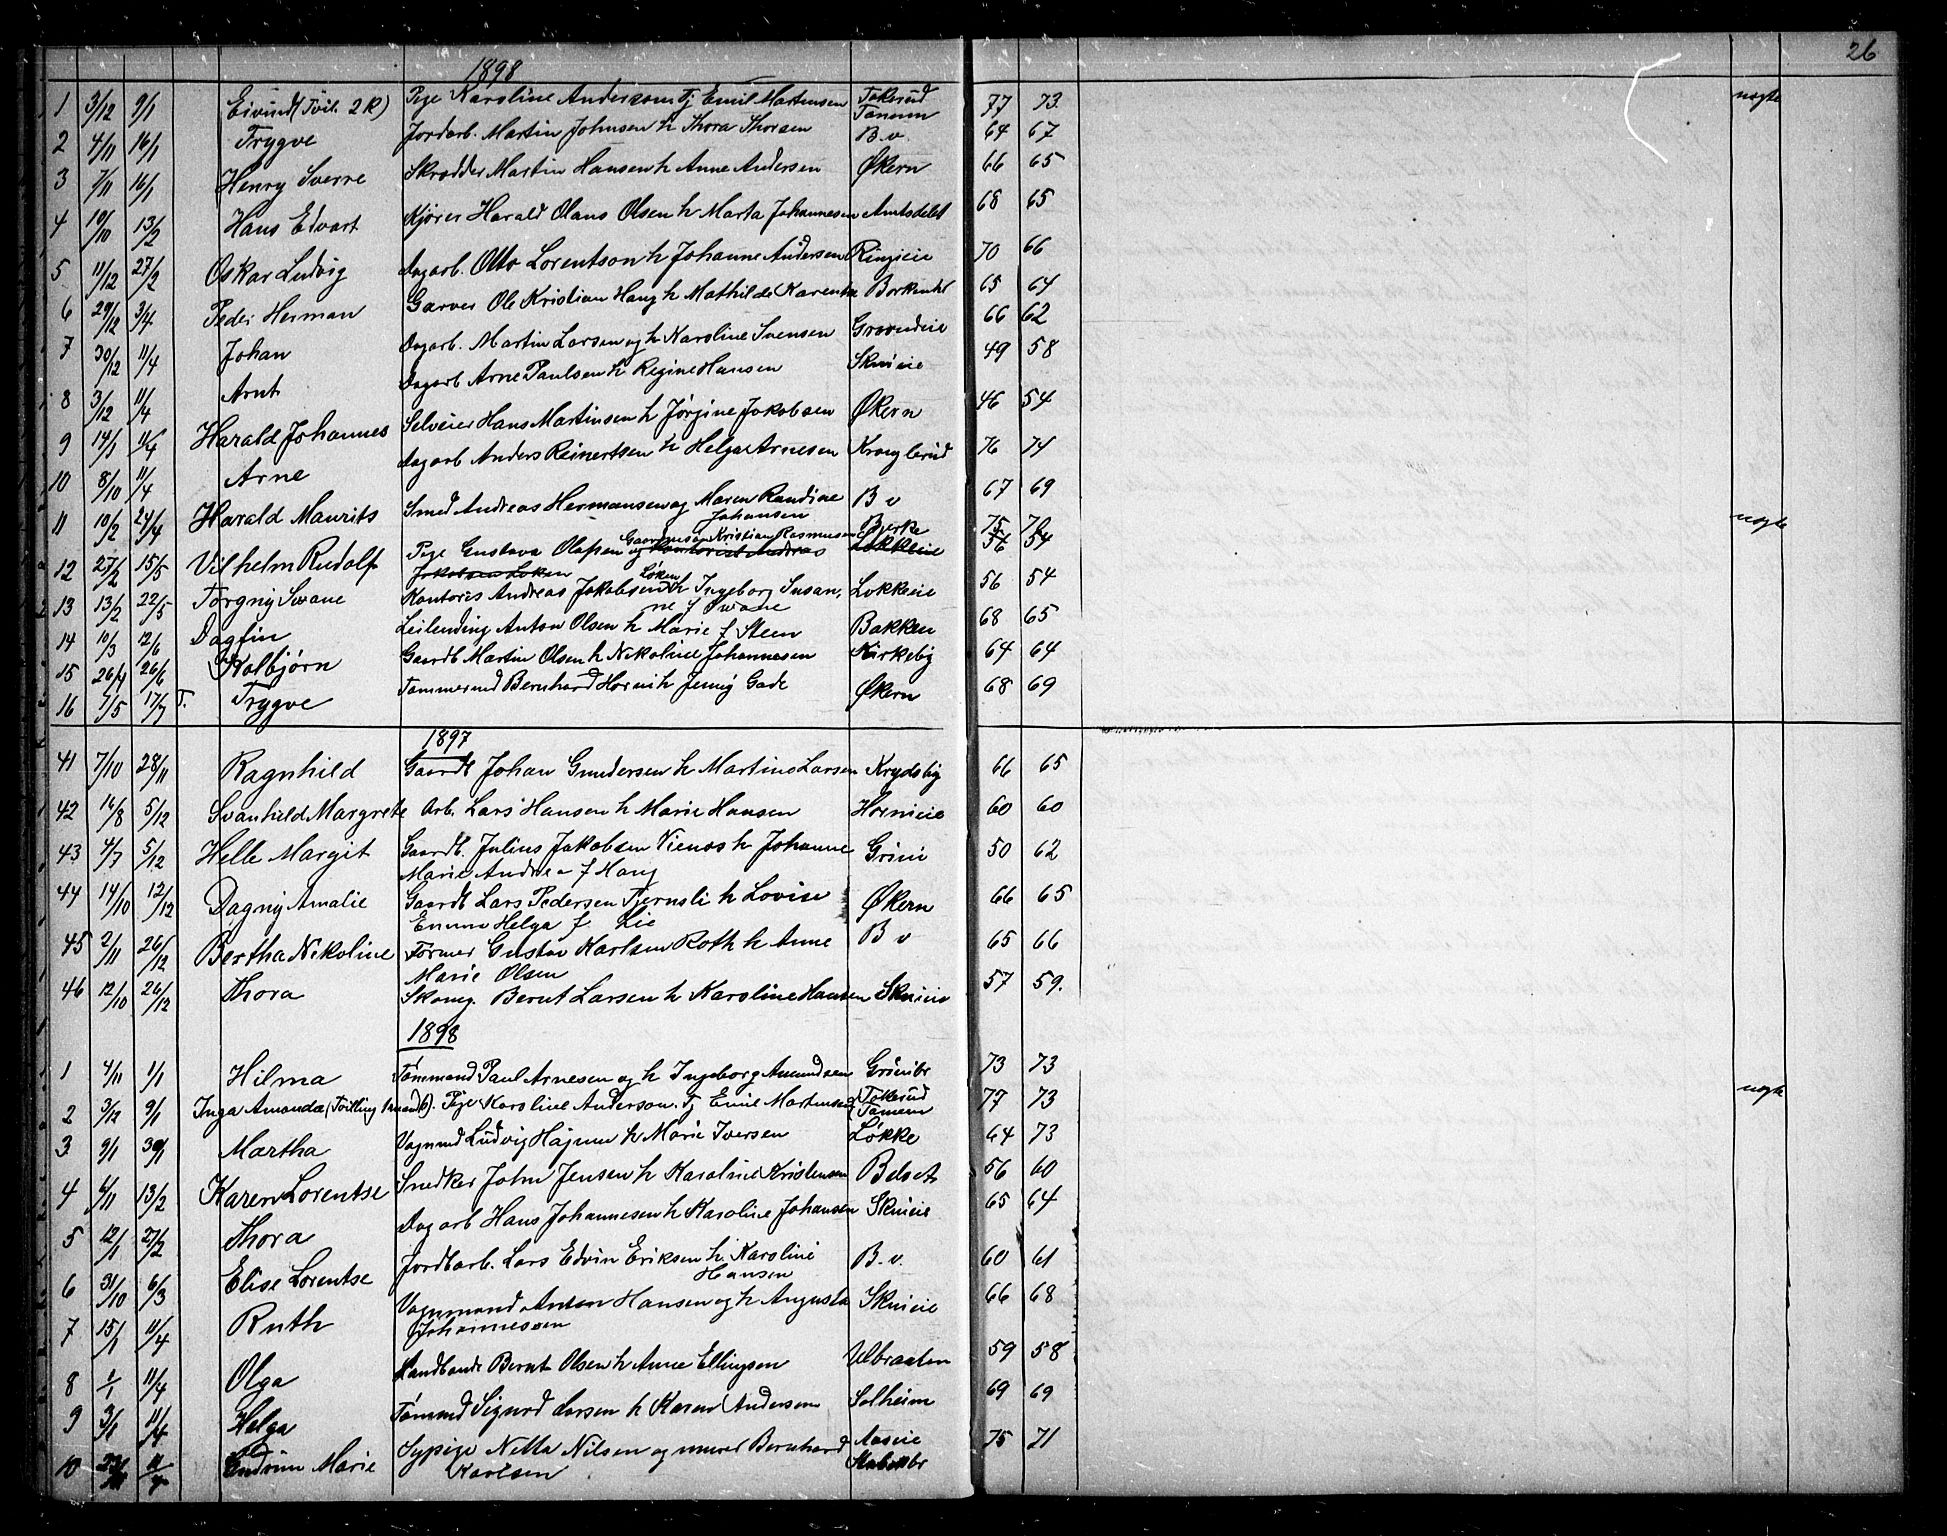 26
1898
1 3/12 9/1 Eivind (Tvil. 2 K) Pige Karoline Anderson Tj Emil Martinsen Tokerud Tanum 77 73 uægte
2 4/11 16/1 Trygve Jordarb. Martin Johnsen h Thora Thorsen B. v. 64 67
3 7/11 16/1 Henry Sverre Skrædder Martin Hansen h Anne Andersen Økern 66 65
4 10/10 13/2 Hans Edvart Kjører Harald Olaus Olsen h Marta Johannesen 68 65
5 11/12 27/2 Oskar Ludvig Dagarb. Otto Lorentson h Johanne Andersen Ringieie 70 66
6 29/12 3/4 Peder Herman Garver Ole Kristian Haug h Mathilde Karenta 65 64
7 30/12 11/4 Johan Dagarb. Martin Larsen og h Karoline Svensen 66 62
8 3/12 11/4 Arnt Dagarb Arne Paulsen h Regine Hansen Skuieie 49 58
9 14/1 11/4 Harald Johannes Selveier Hans Martinsen h Jørgine Jakobsen Økern 46 54
10 8/10 11/4 Arne Dagarb Anders Reinertsen h Helga Arnesen Kranglerud 76 74
11 10/2 24/4 Harald Maurits Smed Andreas Hermansen og Maren Randine Johansen B v 67 69
12 27/2 15/5 Vilhelm Rudolf Pige Gustava Olafsen og Kontorist Andreas Gaardmsøn Kristian Rasmusen Bjerke Løkkeie 75 56 54 uægte
Jakobsen Løken
13 13/2 22/5 Torgny Swane Kontoris Andreas Jakobsen Løken h Ingeborg Susanne f Swane Løkkeie 56 54
14 10/3 12/6 Dagfin Leilending Anton Olsen h Marie f Steen Bakken 68 65
15 26/4 26/6 Kolbjørn Gaardb Martin Olsen h Nikoline Johannesen Kirkeby 64 64
16 7/5 17/7 T. Trygve Tømmermd Bernhard Horni h Jenny Gade Økern 68 69
1897
41 7/10 28/11 Ragnhild Gaardb Johan Gundersen h Martine Larsen Krydsby 66 65
42 16/8 5/12 Svanhild Margrete Arb. Lars Hansen h Marie Hansen Hornieie 60 60
43 4/7 5/12 Helle Margit Gaardb. Julius Jakobsen h Johanne Grini 50 62
Marie Andrea f Haug
44 14/10 12/12 Dagny Amalie Gaardb Lars Pedersen Tjernsli h Lovise Økern 66 65
Emma Helga f Lie
45 2/11 26/12 Bertha Nikoline Former Gustav Karlsen Roth h Anne B v 65 66
Marie Olsen
46 12/10 26/12 Thora Skomg. Bernt Larsen h Karoline Hansen Skuieie 57 59.
1898
1 4/11 1/1 Hilma Tømmand Paul Arnesen og h Ingeborg Amundsen Grinibr 73 73
2 3/12 9/1 Inga Amanda (Tvilling 1 mandk). Pige Karoline Anderson. Tj Emil Martinsen Tokerud Tanum 77 73 uægte
3 9/1 30/1 Martha Vognmd Ludvig Hagnen h Marie Iversen Løkke 64 73
4 6/11 13/2 Karen Lorentse Snedker John Jensen h Karoline Kristensen Belset 56 60
5 12/1 27/2 Thora Dagarb Hans Johannesen h Karoline Johansen Skuieie 65 64
6 31/10 6/3 Elise Lorentse Jordbarb. Lars Edvin Eriksen h. Karoline Hansen B. v. 60 61
7 15/1 11/4 Ruth Vognmand Anton Hansen og h Augusta Skuieie 66 68
Johannessen
8 2/1 11/4 Olga Landhandl Bernt Olsen h Anne Ellingsen Ulbraaten 59 58
9 3/1 11/4 Helga Tømmd Sigurd Larsen h Karen Andersen Solheim 69 69
10 Gudrun Marie Sypige Netta Nilsen og murer Bernhard Karlsen Aaseie Stabækbr 75 71